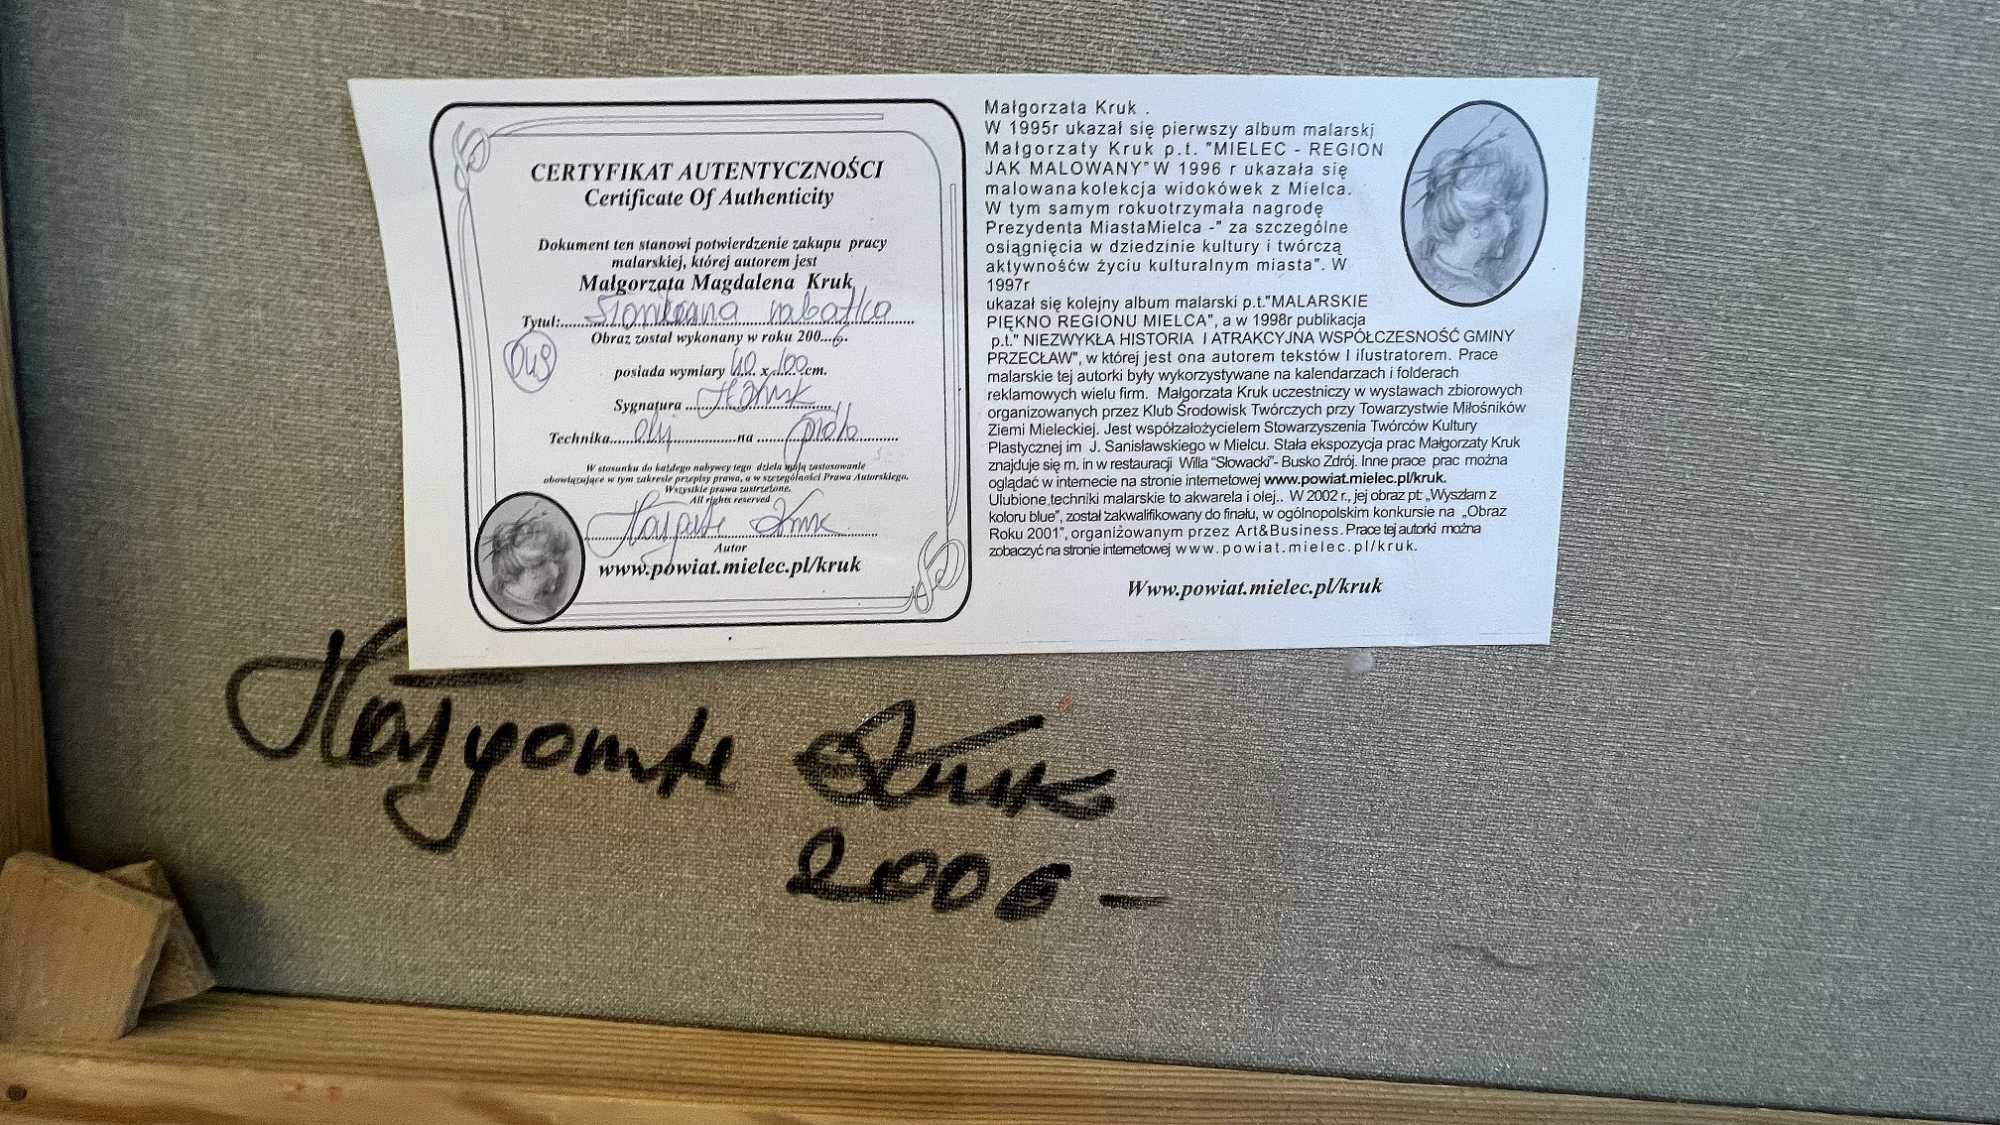 CERTYFIKAT AUTENTYCZNOŚCI
Certificate Of Authenticity
Dokument ten stanowi potwierdzenie zakupu pracy
malarskiej, której autorem jest
Małgorzata Magdalena Kruk
Tytuł: Słoneczna rabatka
Obraz został wykonany w roku 200...6.
048
posiada wymiary 40 x 100 cm.
Sygnatura M Kruk
Technika olej na płótno
W stosunku do każdego nabywcy tego dzieła mają zastosowanie
obowiązujące w tym zakresie przepisy prawa, a w szczególności Prawa Autorskiego.
Wszystkie prawa zastrzeżone.
All rights reserved
Małgorzata Kruk
Autor
www.powiat.mielec.pl/kruk
Małgorzata Kruk .
W 1995r ukazał się pierwszy album malarski
Małgorzaty Kruk p.t. "MIELEC - REGION
JAK MALOWANY" W 1996 r ukazała się
malowana kolekcja widokówek z Mielca.
W tym samym rokuotrzymała nagrodę
Prezydenta MiastaMielca -" za szczególne
osiągnięcia w dziedzinie kultury i twórczą
aktywnośćw życiu kulturalnym miasta". W
1997r
ukazał się kolejny album malarski p.t."MALARSKIE
PIĘKNO REGIONU MIELCA", a w 1998r publikacja
p.t." NIEZWYKŁA HISTORIA I ATRAKCYJNA WSPÓŁCZESNOŚĆ GMINY
PRZECŁAW", w której jest ona autorem tekstów I ilustratorem. Prace
malarskie tej autorki były wykorzystywane na kalendarzach i folderach
reklamowych wielu firm. Małgorzata Kruk uczestniczy w wystawach zbiorowych
organizowanych przez Klub Środowisk Twórczych przy Towarzystwie Miłośników
Ziemi Mieleckiej. Jest współzałożycielem Stowarzyszenia Twórców Kultury
Plastycznej im J. Sanisławskiego w Mielcu. Stała ekspozycja prac Małgorzaty Kruk
znajduje się m. in w restauracji Willa "Słowacki"- Busko Zdrój. Inne prace prac można
oglądać w internecie na stronie internetowej www.powiat.mielec.pl/kruk.
Ulubione techniki malarskie to akwarela i olej.. W 2002 r., jej obraz pt: „Wyszłam z
koloru blue", został zakwalifikowany do finału, w ogólnopolskim konkursie na „Obraz
Roku 2001", organizowanym przez Art&Business. Prace tej autorki można
zobaczyć na stronie internetowej www.powiat.mielec.pl/kruk.
Www.powiat.mielec.pl/kruk
Małgorzata Kruk
2006 -